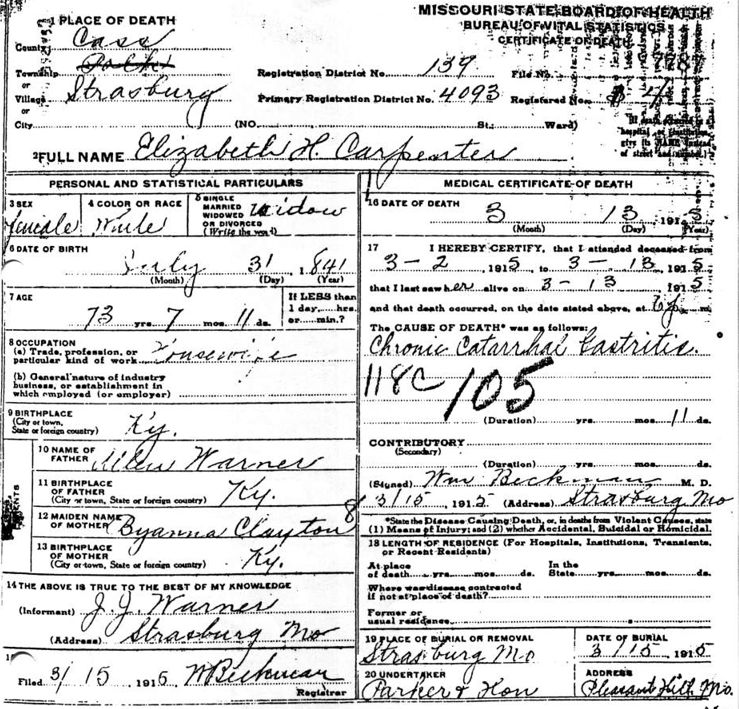 MISSOURI STATE BOARD OF HEALTH
BUREAU OF VITAL STATISTICS
CERTIFICATE OF DEATH
1 PLACE OF DEATH
County Cass
Township Polk
or
Village Strasburg
or
City (NO. St.; Ward)
Registration District No. 139 File No. 7787
Primary Registration District No. 4093 Registered No. 4
2 FULL NAME Elizabeth H. Carpenter
PERSONAL AND STATISTICAL PARTICULARS
3 SEX female
4 COLOR OR RACE White
5 SINGLE MARRIED WIDOWED OR DIVORCED (Write the word) widow
6 DATE OF BIRTH
July 31 1841
(Month) (Day) (Year)
7 AGE
73 yrs. 7 mos. 11 ds.
If LESS than 1 day, hrs. or min.?
8 OCCUPATION
(a) Trade, profession, or particular kind of work Housewife
(b) General nature of industry business, or establishment in which employed (or employer)
9 BIRTHPLACE
(City or town, State or foreign country) Ky.
10 NAME OF FATHER Allen Warner
11 BIRTHPLACE OF FATHER
(City or town, State or foreign country) Ky.
12 MAIDEN NAME OF MOTHER Byanna Clayton
13 BIRTHPLACE OF MOTHER
(City or town, State or foreign country) Ky.
14 THE ABOVE IS TRUE TO THE BEST OF MY KNOWLEDGE
(Informant) J. J. Warner
(Address) Strasburg Mo
Filed 3/15 1915 W Beckman
Registrar
MEDICAL CERTIFICATE OF DEATH
16 DATE OF DEATH 3 13 1915
(Month) (Day) (Year)
17 I HEREBY CERTIFY, that I attended deceased from
3-2 1915 to 3-13 1915
that I last saw her alive on 3-13 1915
and that death occurred, on the date stated above, at
The CAUSE OF DEATH* was as follows:
Chronic Catarrhal Gastritis.
118C 105
(Duration) yrs. mos. 11 ds.
CONTRIBUTORY
(Secondary)
(Duration) yrs. mos. ds.
(Signed) Wm Beckman M. D.
3/15, 1915 (Address) Strasburg Mo
*State the Disease Causing Death, or, in deaths from Violent Causes, state
(1) Means of Injury; and (2) whether Accidental, Suicidal or Homicidal.
18 LENGTH OF RESIDENCE (For Hospitals, Institutions, Transients, or Recent Residents)
At place of death yrs. mos. ds. In the State yrs. mos. ds.
Where was disease contracted
if not at place of death?
Former or
usual residence
19 PLACE OF BURIAL OR REMOVAL
Strasburg Mo
DATE OF BURIAL
3/15 1915
20 UNDERTAKER
Parker & Hon
ADDRESS
Pleasant Hill Mo.